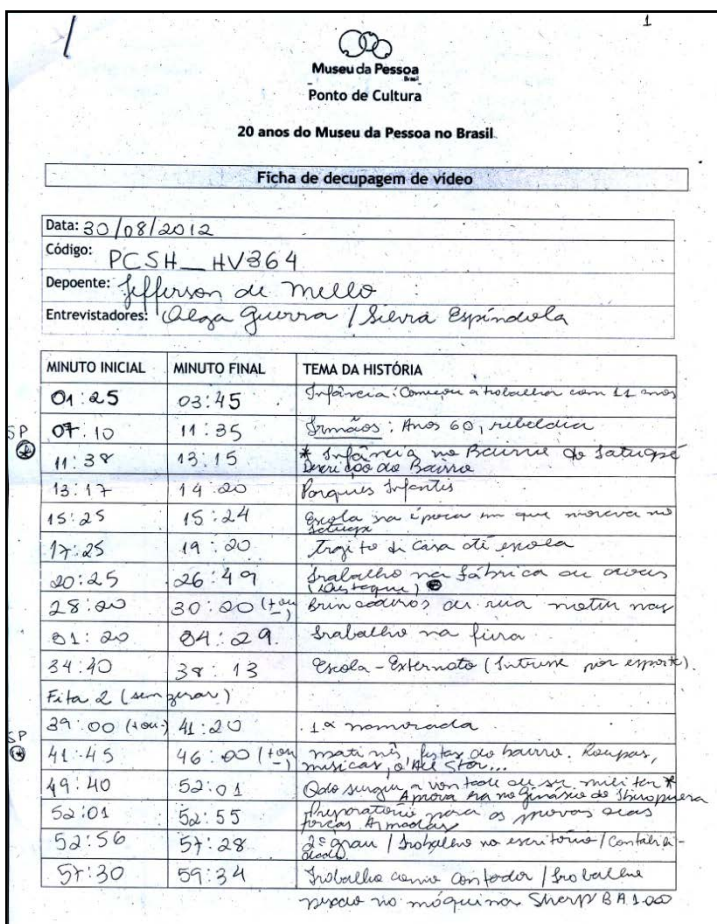 1
Museu da Pessoa
Brasil
Ponto de Cultura
20 anos do Museu da Pessoa no Brasil
Ficha de decupagem de vídeo
Data: 30/08/2012
Código: PCSH_HV364
Depoente: Jefferson de Mello
Entrevistadores: Olga Guerra / Silvia Espíndola
MINUTO INICIAL MINUTO FINAL TEMA DA HISTÓRIA
01:25 03:45 Infância: Começou a trabalhar com 11 anos
SP
07:10 11:35 Irmãos: Anos 60, rebeldia
11:38 13:15 * Infância no Bairro do Tatuapé
Descrição do Bairro
13:17 14:20 Parques Infantis
15:25 15:24 Escola na época em que morava no
Tatuapé
17:25 19:20 Trajeto de casa até escola
20:25 26:49 Trabalho na fábrica de
(Destaque)
28:20 30:20 (+ou-) Brincadeiras de rua
31:20 34:29 Trabalho na feira
34:40 38:13 Escola - Externato (Interesse por esporte)
Fita 2 (sem gerar)
39:00 (+ou-) 41:20 1ª namorada
SP
41:45 46:00 (+ou-) matinês, festas do bairro. Roupas,
músicas, o All Star...
49:40 52:01 Qdo surgiu a vontade de ser militar *
A prova era no Ginásio do Ibirapuera
52:01 52:55 Preparatório para as provas das
forças Armadas
52:56 57:28 2º grau / Trabalho no escritório / Contabilidade
57:30 59:34 Trabalho como contador / Trabalho
no máquina Sharp BA1000